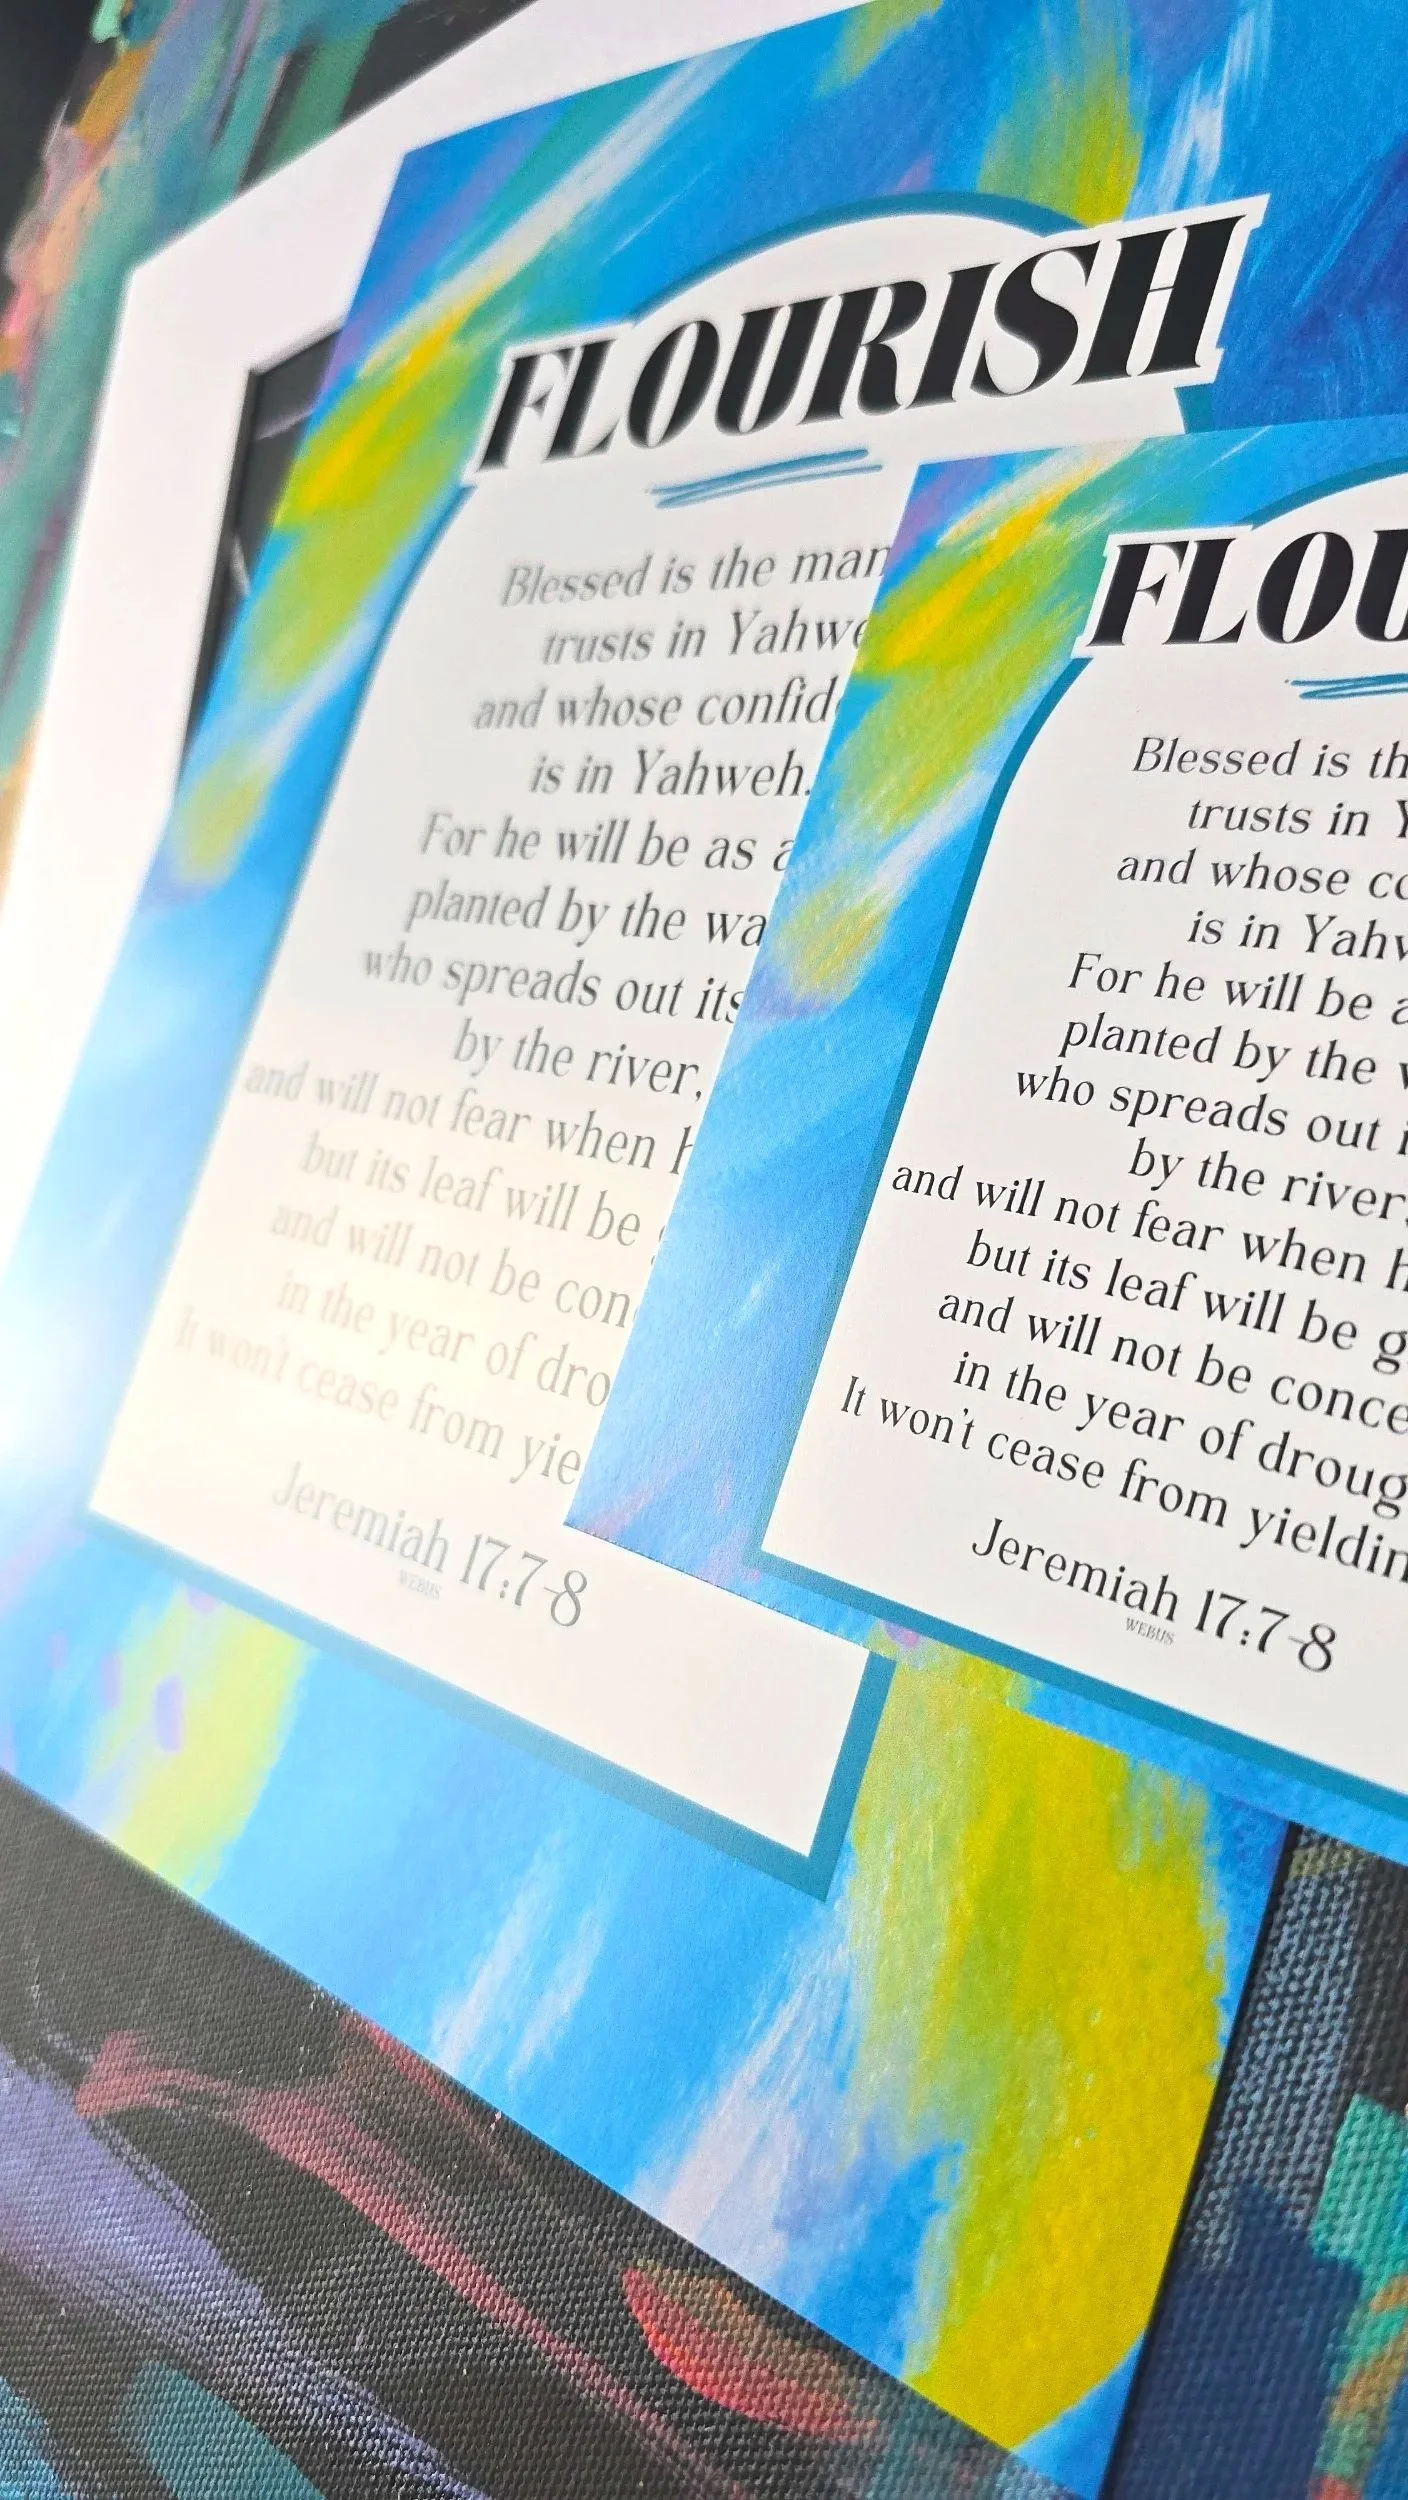 FLOURISH
Blessed is the man
trusts in
and whose
is in Yahweh.
For he will be as a
planted by the
who spreads out its
by the river,
and will not fear when
but its leaf will be
and will not be
in the year of
It won't cease from
Jeremiah 17:7-8
WEBUS
Blessed is
trusts in
and whose
is in
For he will be a
planted by the
who spreads out
by the river,
and will not fear when
but its leaf will be
and will not be
in the year of
It won't cease from
Jeremiah 17:7-8
WEBUS